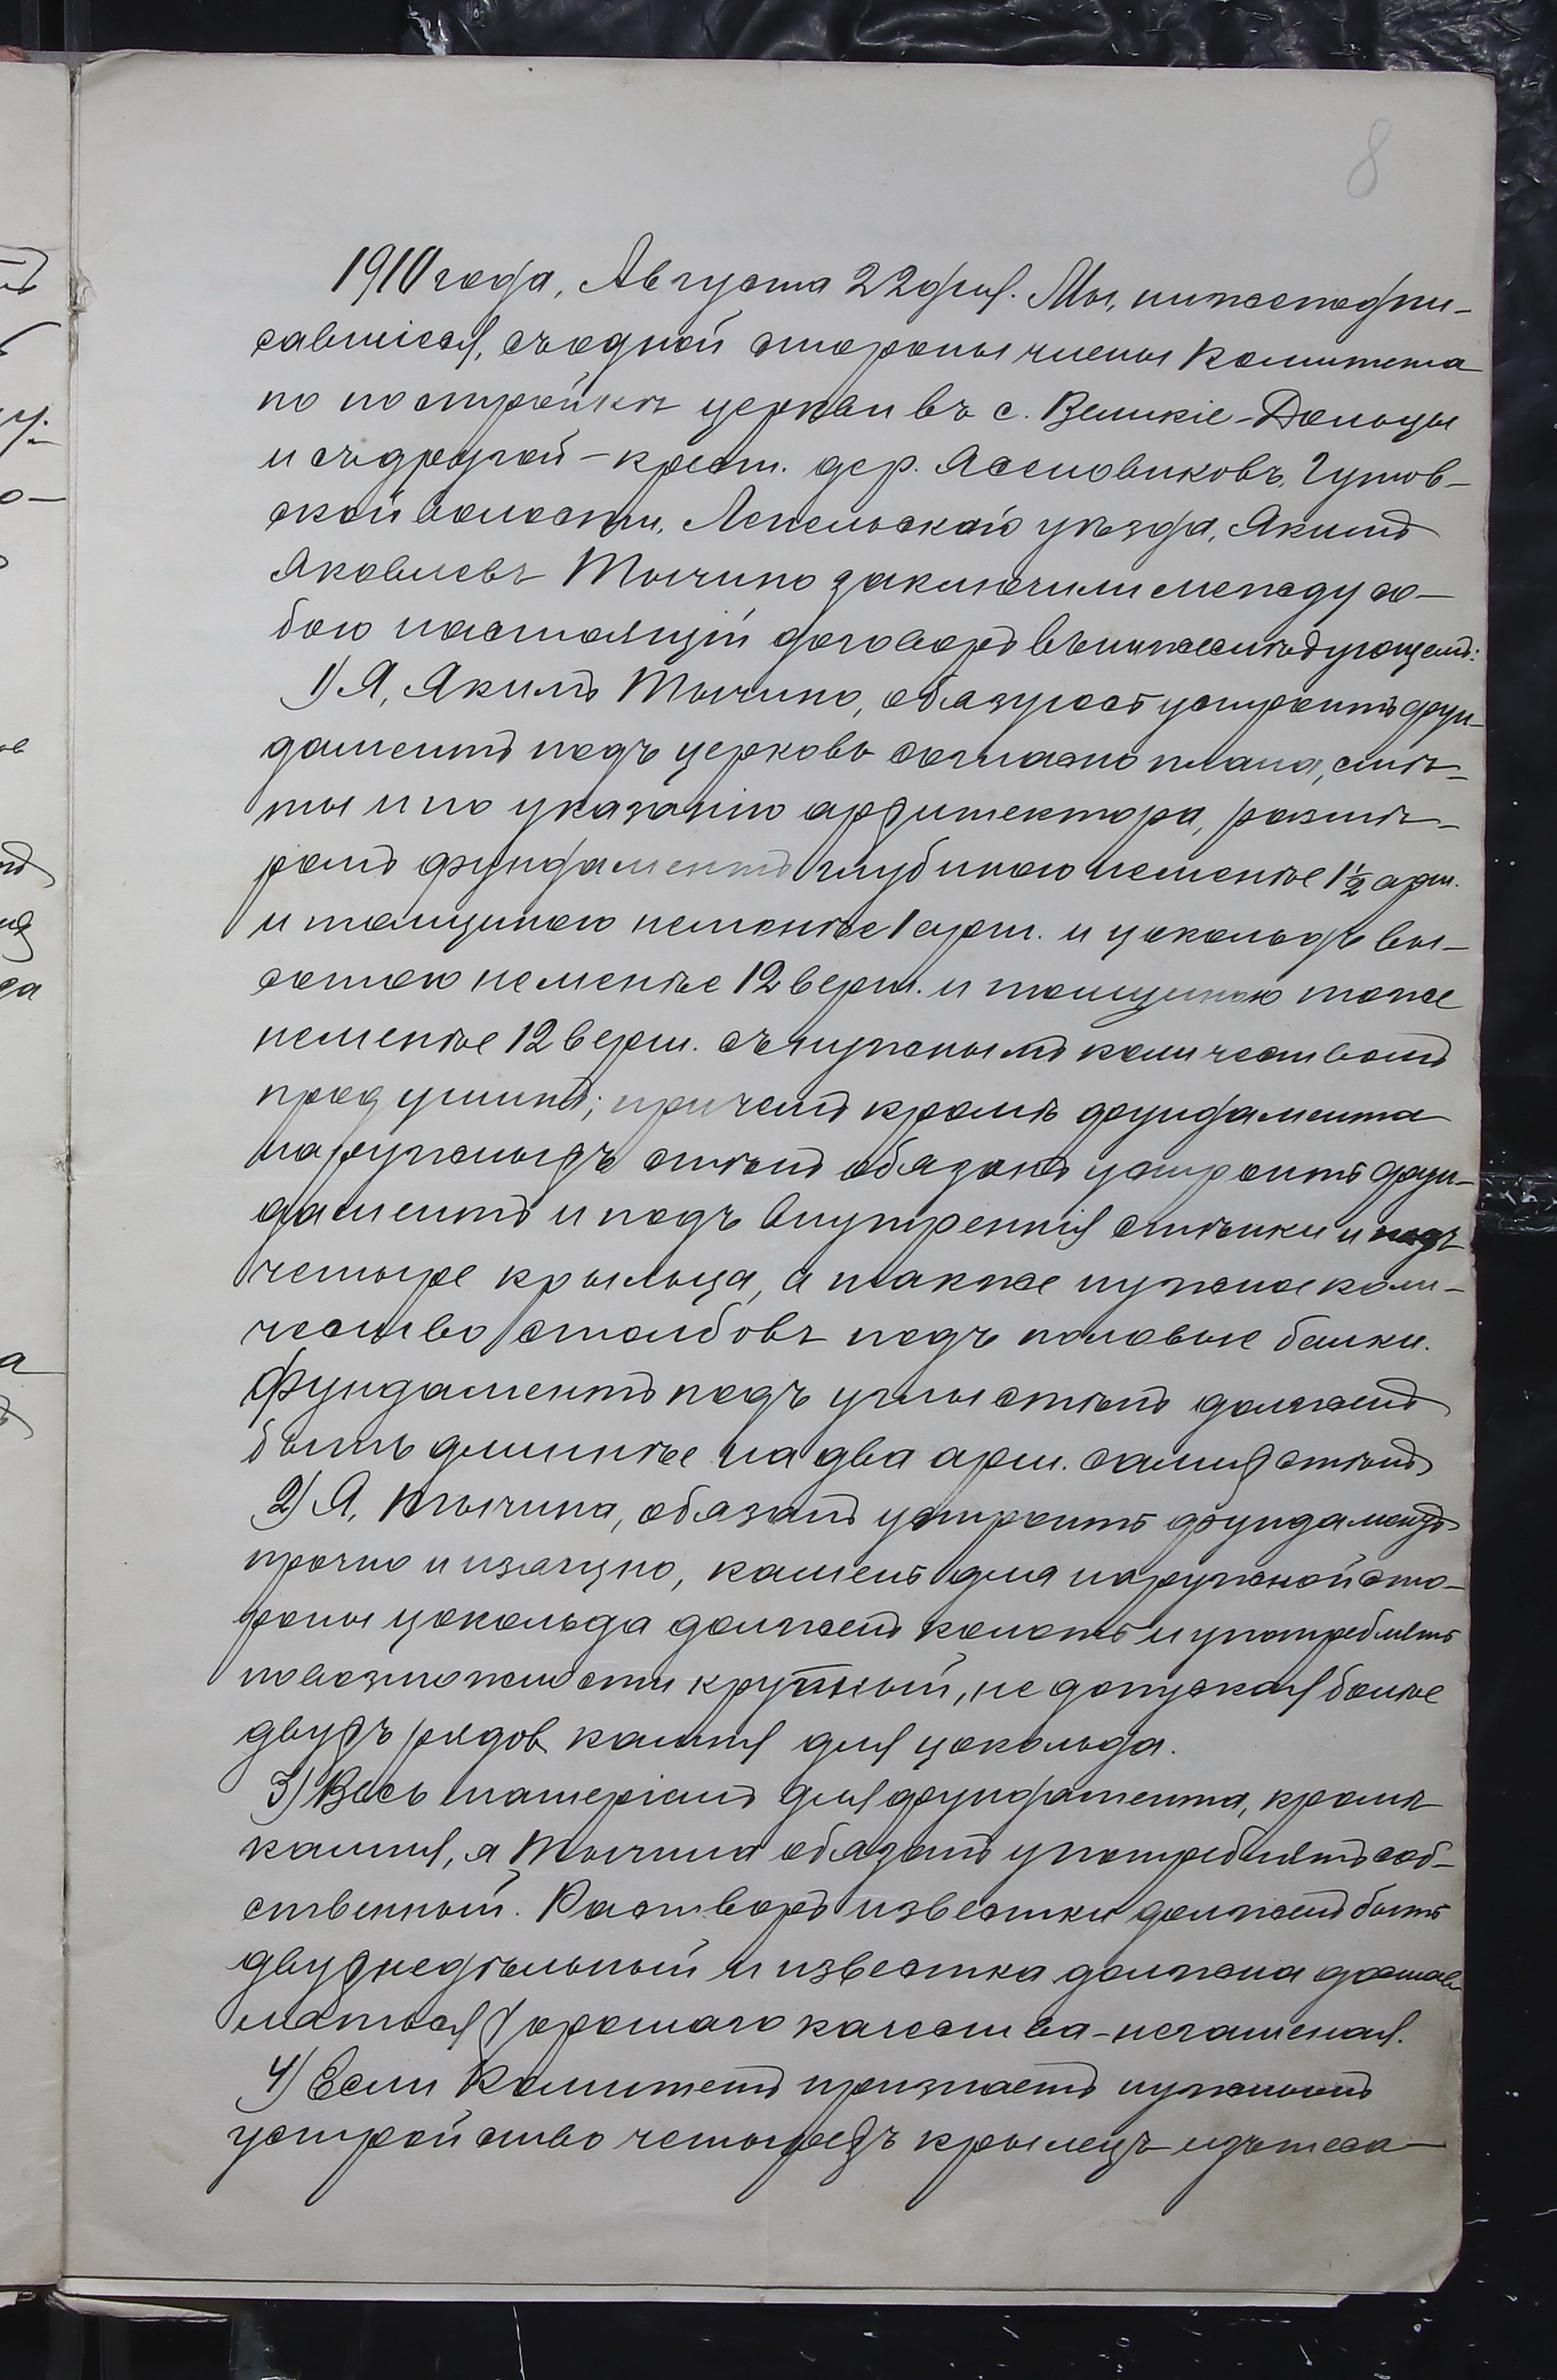 8
1910 года, Августа 22 дня. Мы, нижеподпи-
савшіеся, съ одной стороны члены Комитета
по постройкѣ церкви въ с. Великіе-Дольцы
и съ другой – крест. дер. Асеновиковъ, Гутов-
ской волости, Лепельскаго уѣзда, Якимъ
Яковлевъ Тычино заключили между со-
бою настоящій договоръ въ нижеслѣдующемъ:
1) Я, Якимъ Тычино, обязуюсь устроить фун-
даментъ подъ церковь согласно плана, смѣ-
ты и по указанію архитектора, размѣ-
ромъ фундаментъ глубиною неменѣе 1½ арш.
и толщиною неменѣе 1 арш. и цокольдъ вы-
сотою неменѣе 12 верш. и толщиною тоже
неменѣе 12 верш. съ нужнымъ количествомъ
продушинъ; причемъ кромѣ фундамента
наружныхъ стѣнъ обязанъ устроить фун-
даментъ и подъ внутреннія стѣнки и подъ
четыре крыльца, а также нужное коли-
чество столбовъ подъ половые балки.
Фундаментъ подъ углы стѣнъ долженъ
быть длиннѣе на два арш. самих стѣнъ
2) Я, Тычина, обязанъ устроить фундаментъ
прочно и изящно, камень для наружной сто-
роны цокольда долженъ колоть и употреблять
по возможности крупный, не допуская болѣе
двухъ рядов камня для цокольда.
3) Весь матеріалъ для фундамента, кромѣ
камня, я Тычина обязанъ употреблять соб-
ственный. Растворъ известки долженъ быть
двухнедѣльный и известка должна достав-
ляться хорошаго качества – негашеная.
4) Если Комитетъ признаетъ нужнымъ
устройство четырехъ крылецъ изъ теса-